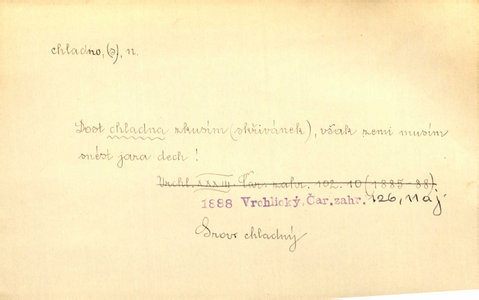 chladno, (a), n.
Dost chladna zkusím (skřivánek), však zemi musím
snést jara dech!
Vrchl. XXXIII. Čar. zahr. 102. 10 (1885-88).
1888 Vrchlický, Čar. zahr. 126, Máj.
Srov. chladný